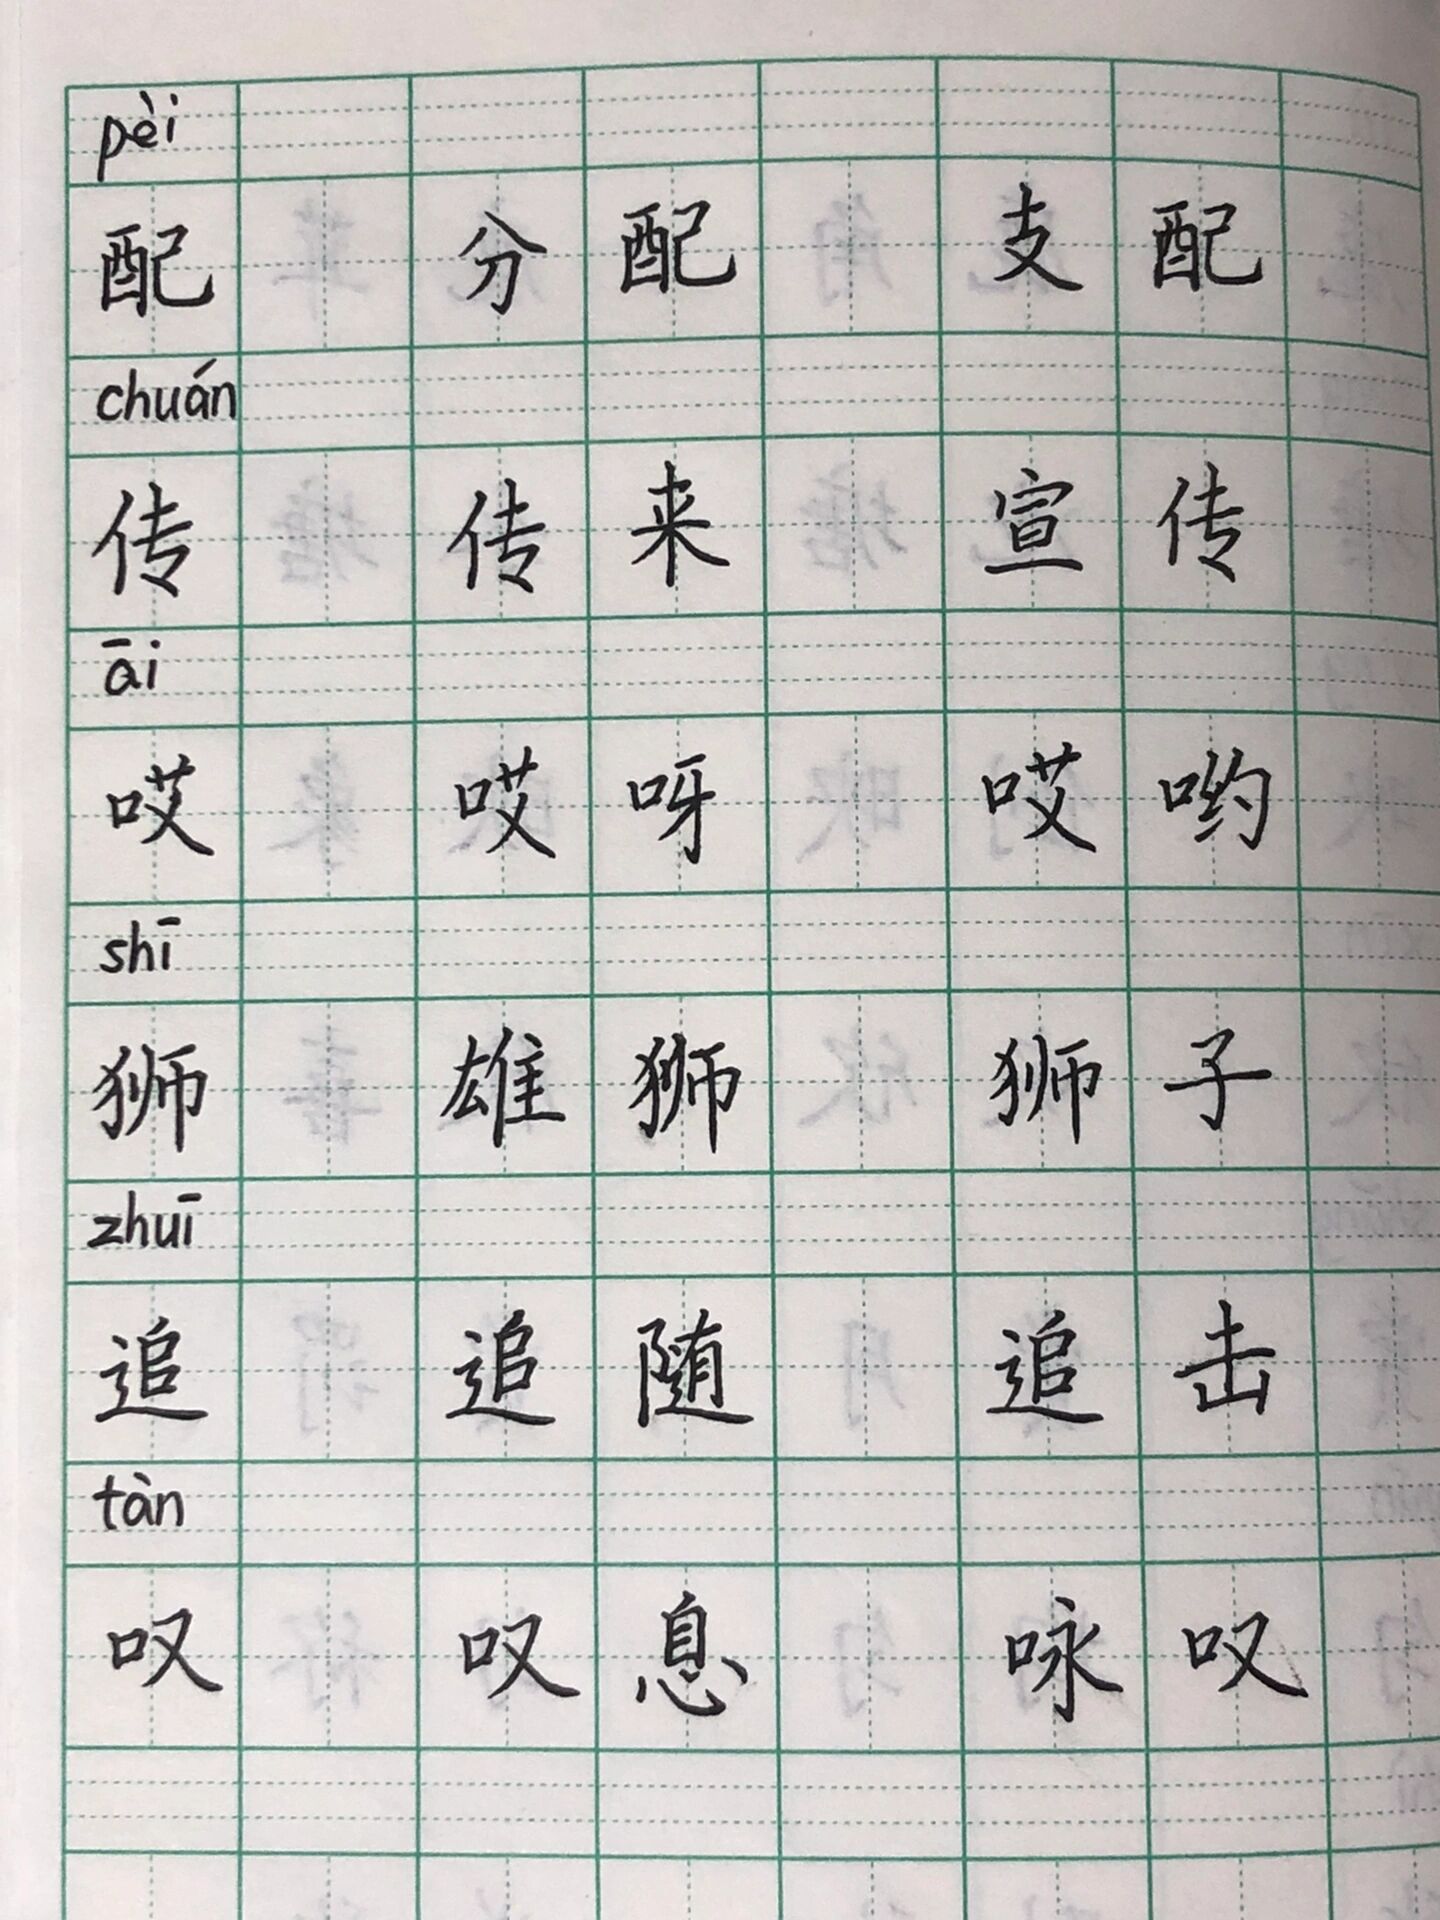 pèi
配 分配 支配
chuán
传 传来 宣传
āi
哎 哎呀 哎哟
shī
狮 雄狮 狮子
zhuī
追 追随 追击
tàn
叹 叹息 咏叹